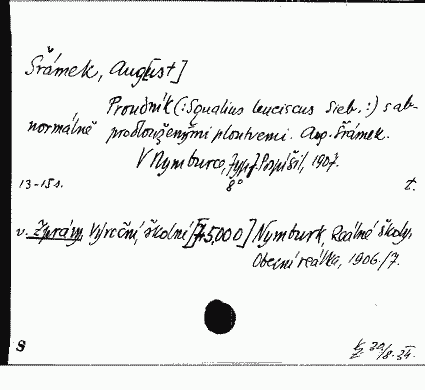 Šrámek, Aug[ust]
Proudník (: Squalius leuciscus Sieb. :) s ab-
normálně prodlouženými ploutvemi. Aug. Šrámek.
V Nymburce, typ. J. Pospíšil, 1907.
13-15 s. 8° t.
v. Zpráva, Výroční, školní [75.000] Nymburk, Reálné školy,
Obecní reálka, 1906/7.
S 30/8.34.